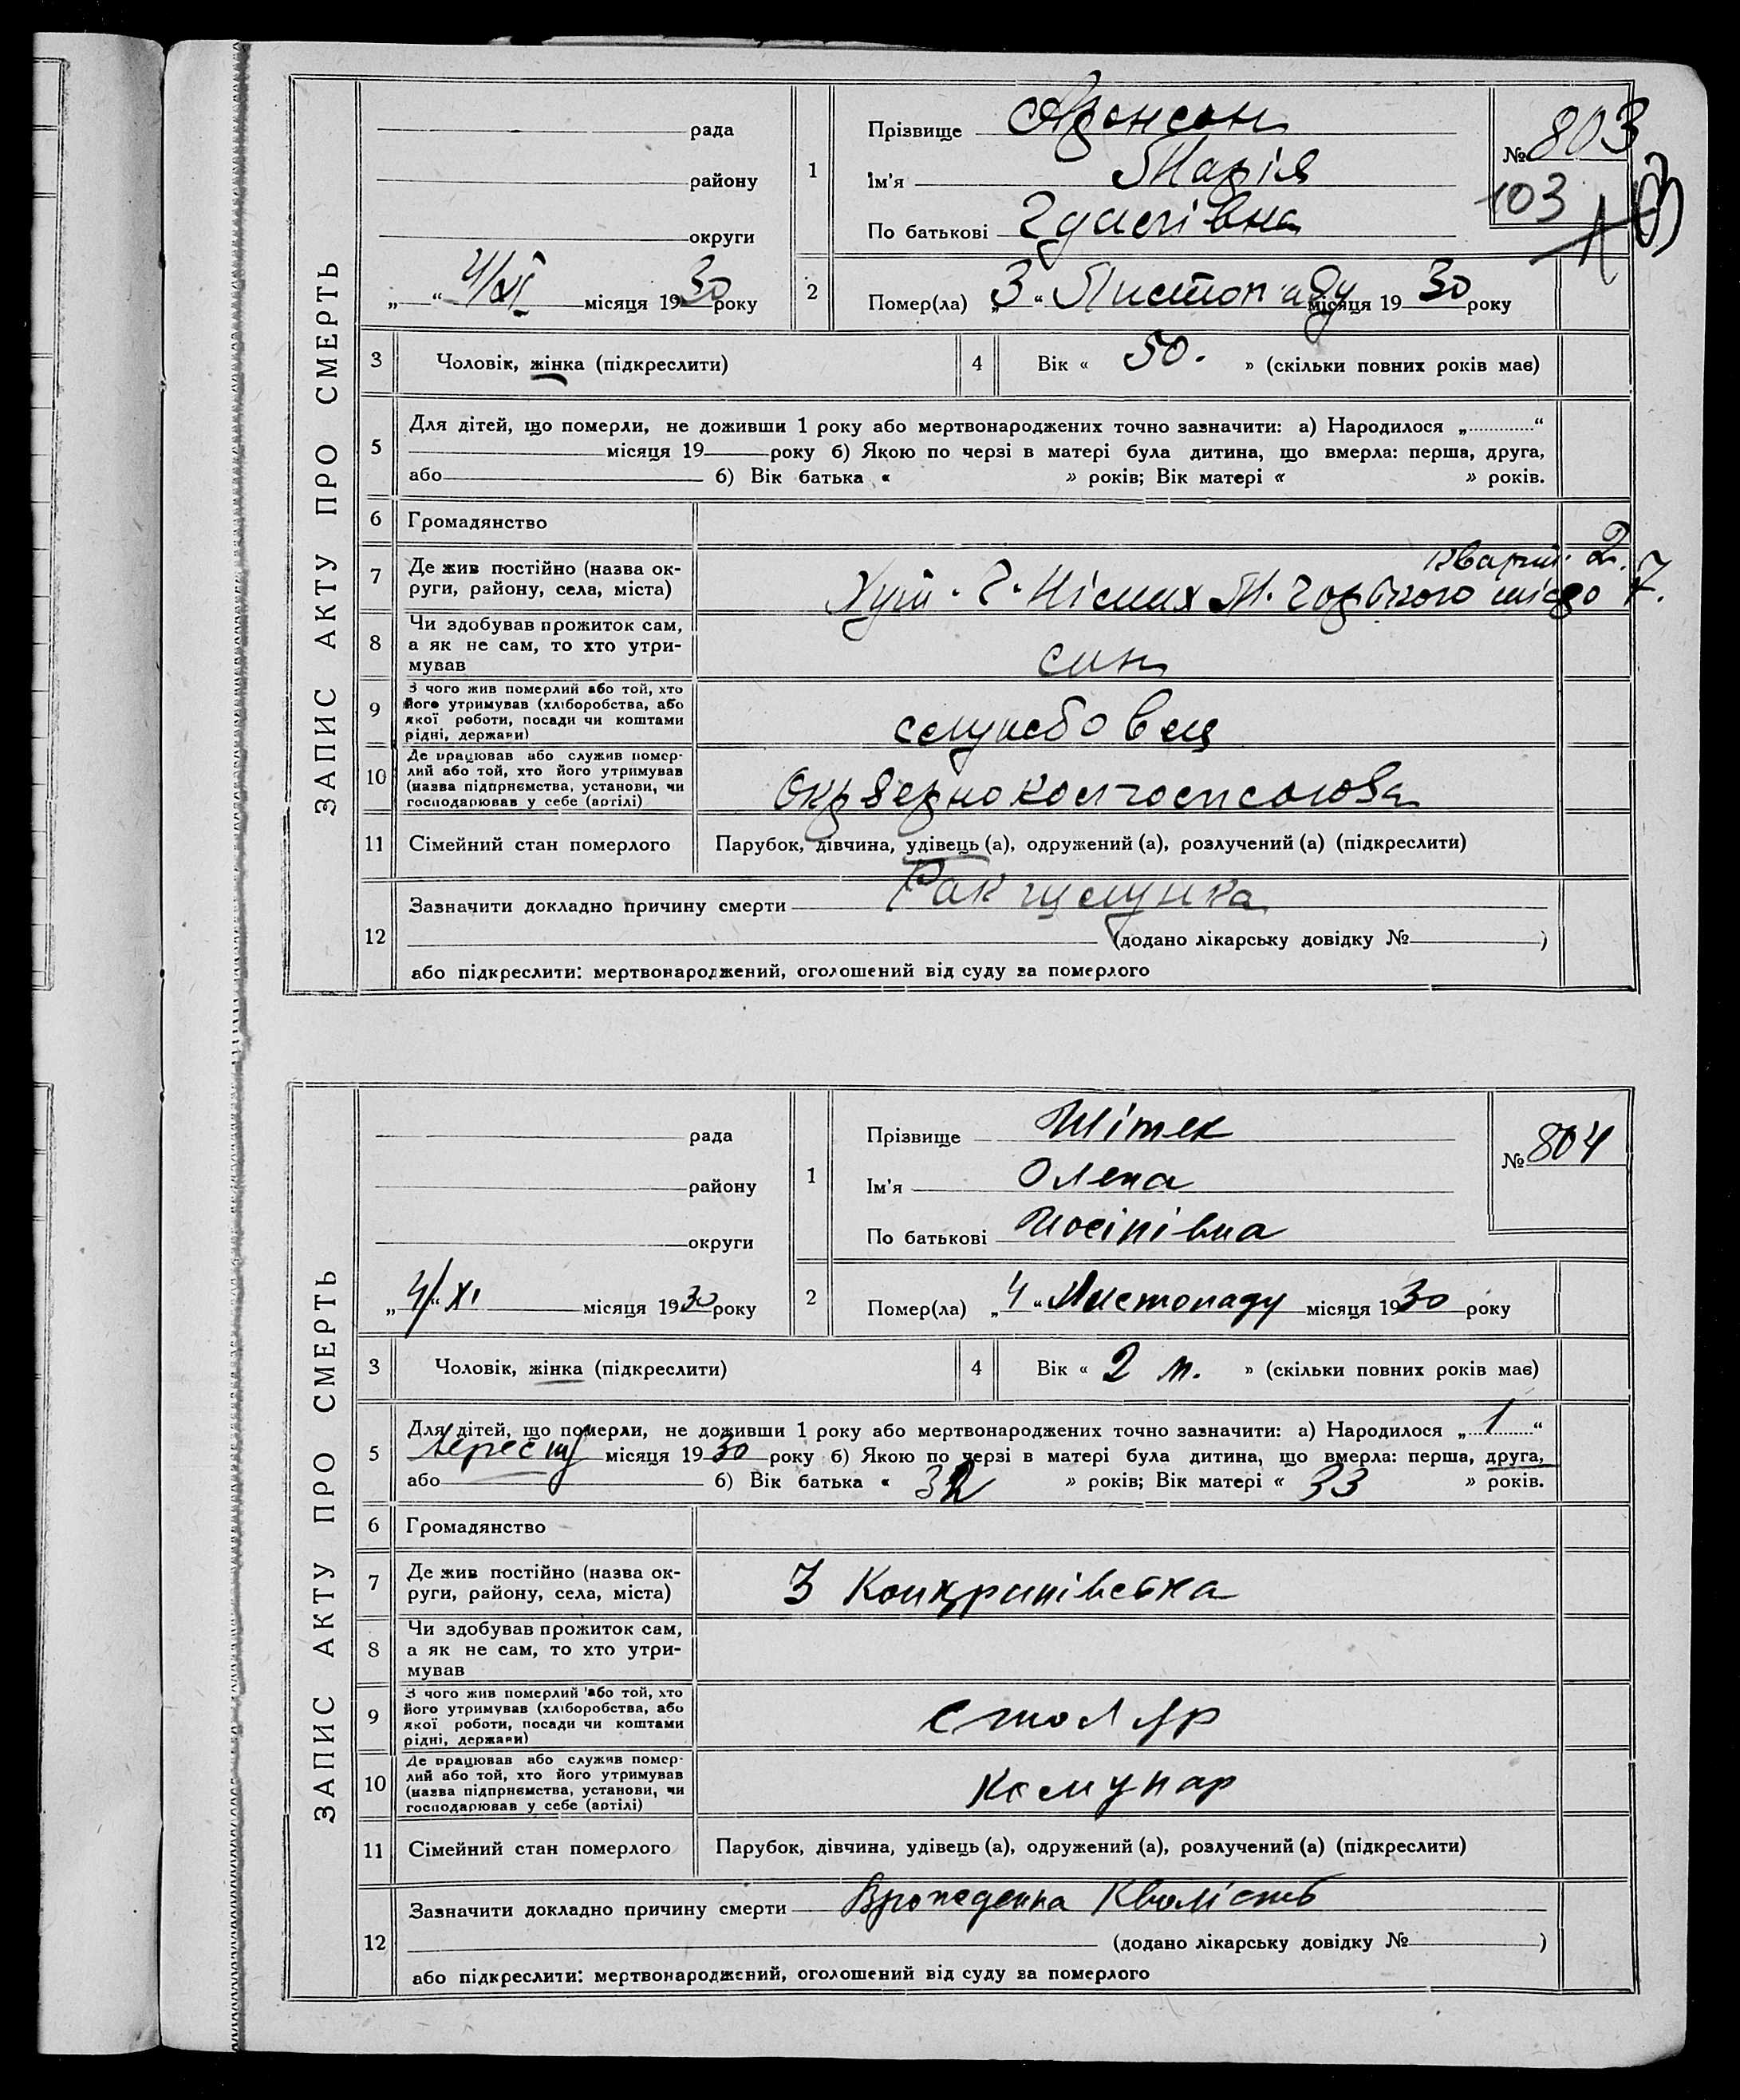 ЗАПИС АКТУ ПРО СМЕРТЬ
рада
району
округи
„ “ 4/XI місяця 1930 року
1
Прізвище Аронсон
Ім'я Марія
По батькові
№ 803
103
2
Помер(ла) „3“ Листопаду місяця 1930 року
3
Чоловік, жінка (підкреслити)
4
Вік « 50. » (скільки повних років має)
5
Для дітей, що померли, не доживши 1 року або мертвонароджених точно зазначити: а) Народилося „ “
місяця 19 року б) Якою по черзі в матері була дитина, що вмерла: перша, друга,
або б) Вік батька « » років; Вік матері « » років.
6
Громадянство
7
Де жив постійно (назва ок-
руги, району, села, міста)
2.
М. Горького 7.
8
Чи здобував прожиток сам,
а як не сам, то хто утри-
мував
син
9
З чого жив померлий або той, хто
його утримував (хліборобства, або
якої роботи, посади чи коштами
рідні, держави)
службовец
10
Де працював або служив помер-
лий або той, хто його утримував
(назва підприємства, установи, чи
господарював у себе (артілі)
11
Сімейний стан померлого
Парубок, дівчина, удівець (а), одружений (а), розлучений (а) (підкреслити)
12
Зазначити докладно причину смерти Рак шлунка
(додано лікарську довідку № )
або підкреслити: мертвонароджений, оголошений від суду за померлого
ЗАПИС АКТУ ПРО СМЕРТЬ
рада
району
округи
„4/“ XI місяця 1930 року
1
Прізвище Шітек
Ім'я Олена
По батькові Йосіпівна
№ 804
2
Помер(ла) „4“ Листопаду місяця 1930 року
3
Чоловік, жінка (підкреслити)
4
Вік « 2 м. » (скільки повних років має)
5
Для дітей, що померли, не доживши 1 року або мертвонароджених точно зазначити: а) Народилося „1“
Вересня місяця 1930 року б) Якою по черзі в матері була дитина, що вмерла: перша, друга,
або б) Вік батька « 32 » років; Вік матері « 33 » років.
6
Громадянство
7
Де жив постійно (назва ок-
руги, району, села, міста)
3
8
Чи здобував прожиток сам,
а як не сам, то хто утри-
мував
9
З чого жив померлий або той, хто
його утримував (хліборобства, або
якої роботи, посади чи коштами
рідні, держави)
столяр
10
Де працював або служив помер-
лий або той, хто його утримував
(назва підприємства, установи, чи
господарював у себе (артілі)
Комунар
11
Сімейний стан померлого
Парубок, дівчина, удівець (а), одружений (а), розлучений (а) (підкреслити)
12
Зазначити докладно причину смерти Врожденна Кволість
(додано лікарську довідку № )
або підкреслити: мертвонароджений, оголошений від суду за померлого